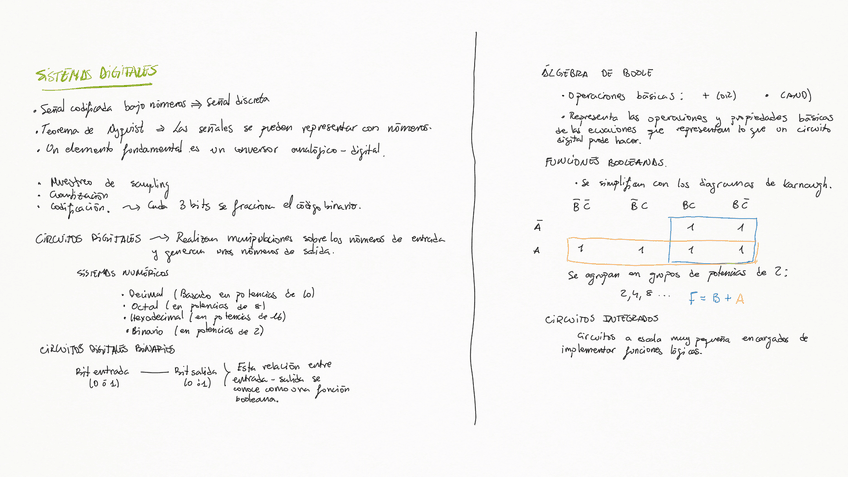 SISTEMAS DIGITALES
• Señal codificada bajo números ⇒ Señal discreta
• Teorema de Nyquist ⇒ Las señales se pueden representar con números.
• Un elemento fundamental es un conversor analógico - digital.
• Muestreo de sampling
• Cuantización
• Codificación. → Cada 3 bits se fracciona el código binario.
CIRCUITOS DIGITALES → Realizan manipulaciones sobre los números de entrada
y generan unos números de salida.
SISTEMAS NUMÉRICOS
• Decimal (Basado en potencias de 10)
• Octal (en potencias de 8)
• Hexadecimal (en potencias de 16)
• Binario (en potencias de 2)
CIRCUITOS DIGITALES BINARIOS
Bit entrada — Bit salida } Esta relación entre
(0 ó 1) (0 ó 1) entrada - salida se
conoce como una función
booleana.
ÁLGEBRA DE BOOLE
• Operaciones básicas: + (OR) • (AND)
• Representa las operaciones y propiedades básicas
de las ecuaciones que representan lo que un circuito
digital puede hacer.
FUNCIONES BOOLEANAS.
• Se simplifican con los diagramas de Karnaugh.
B̅ C̅ B̅ C BC B C̅
A̅ 1 1
A 1 1 1 1
Se agrupan en grupos de potencias de 2:
2, 4, 8 ... F = B + A
CIRCUITOS INTEGRADOS
Circuitos a escala muy pequeña encargados de
implementar funciones lógicas.